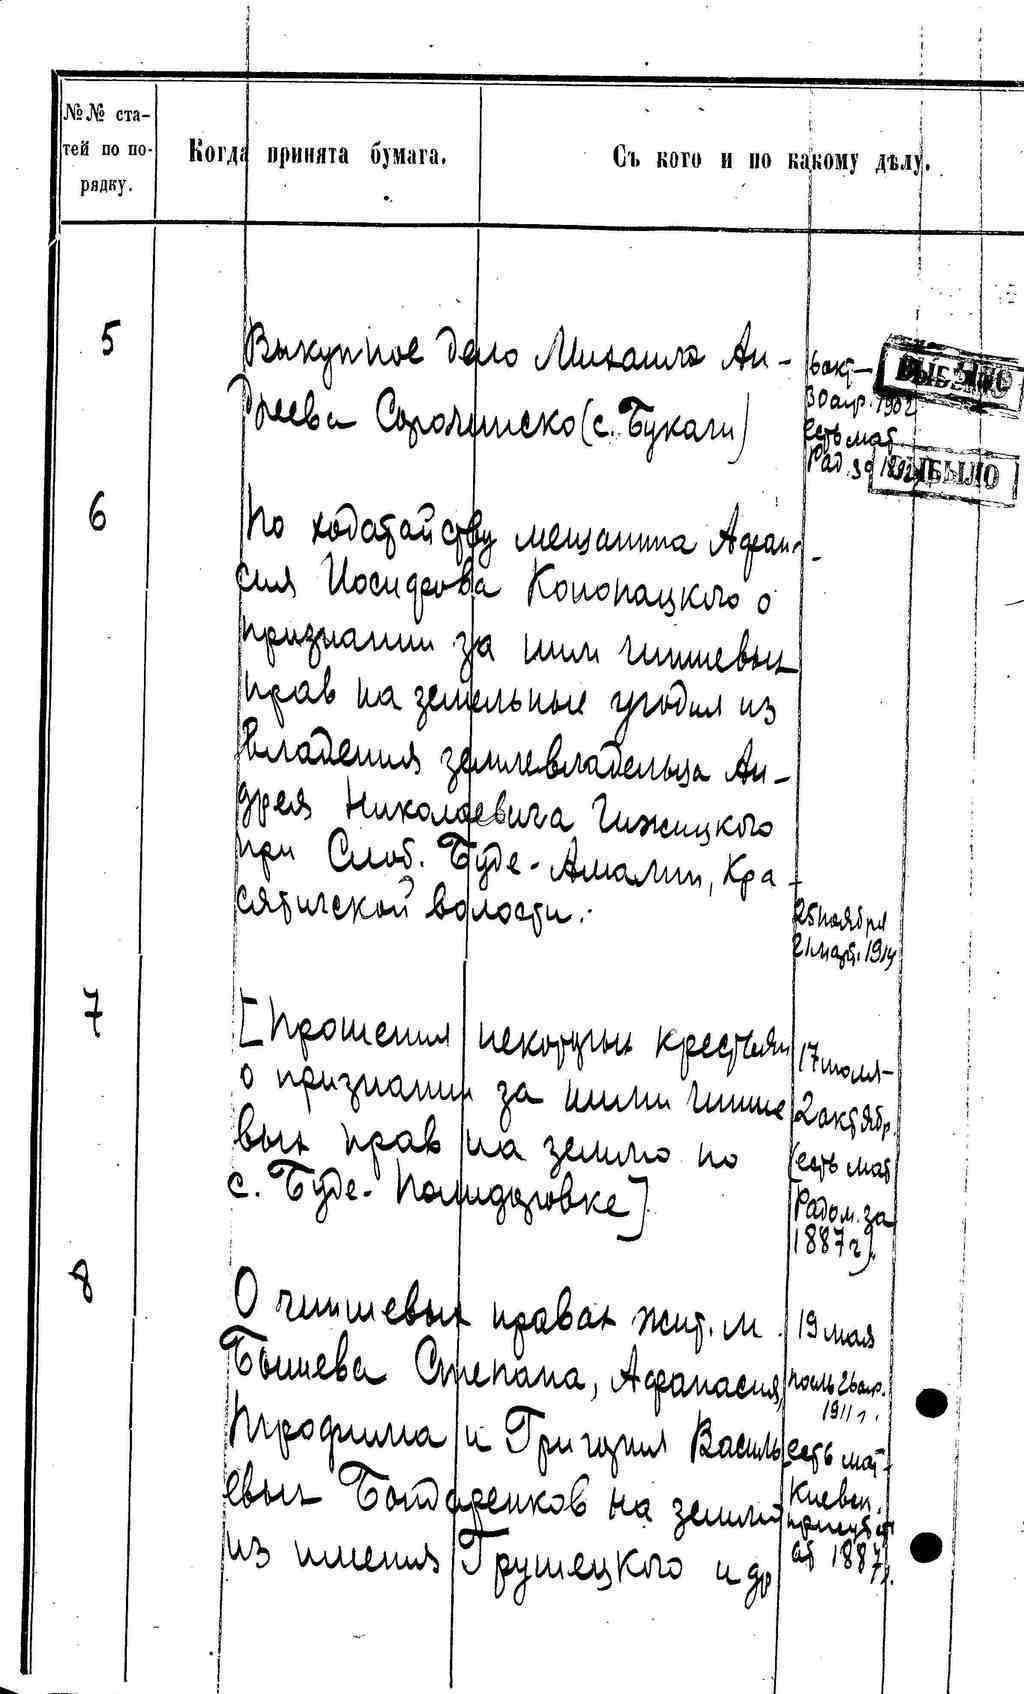 №№ ста-
тей по по-
рядку.
Когда принята бумага.
Съ кого и по какому дѣлу.
5
Выкупное дело Михаила Ан-
дреева Сорочинско (с. Букачи)
6 окт-
30 апр. 1902
есть мат
Рад. 1892
ВЫБЫЛО
ВЫБЫЛО
6
По ходатайству мещанина Афана-
сия Иосифова Конопацкого о
признании за ним чиншевых
прав на земельные угодия из
владения землевладельца Ан-
дрея Николаевича Гижицкого
при Слоб. Буде-Амалии, Кра-
сятичской волости.
25 ноября
21 март. 1914
7
[Прошения некоторых крестьян
о признании за ними чинше
вых прав на землю по
с. Буде-Полидоровке]
17 июля-
2 октябр.
(есть мат
Радом. за
1887 г).
8
О чиншевых правах жит. м.
Бышева Степана, Афанасия,
Трофима и Григория Василь
евых Бондаренков на землю
из имения Грушецкого и др
19 мая
после 26 апр.
1911 г.
есть мат-
Киевск.
присутст
от 1887 г.